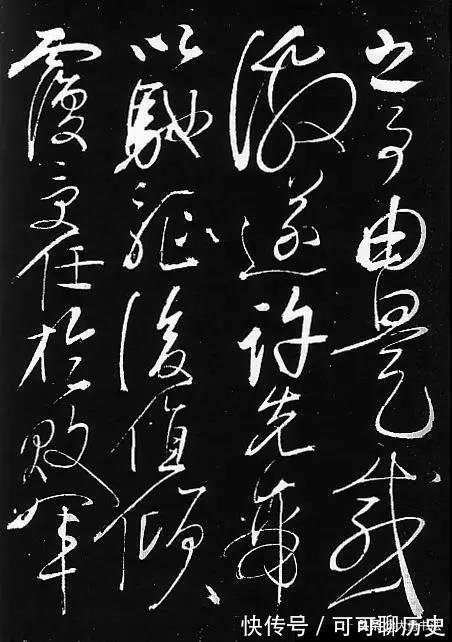 之事由是感
激遂許先帝
以馳驅後值傾
覆受任於敗軍
快传号 / 可可聊历史